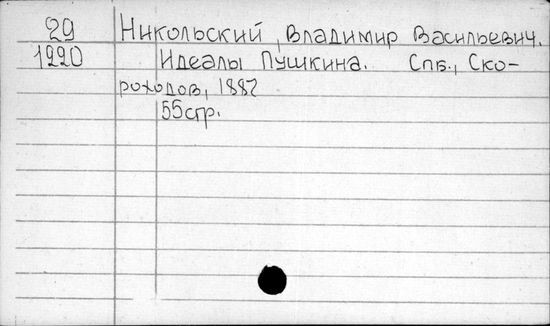 29 Никольский, Владимир Васильевич.
1220 Идеалы Пушкина. Спб., Ско-
роходов, 1882
55стр.